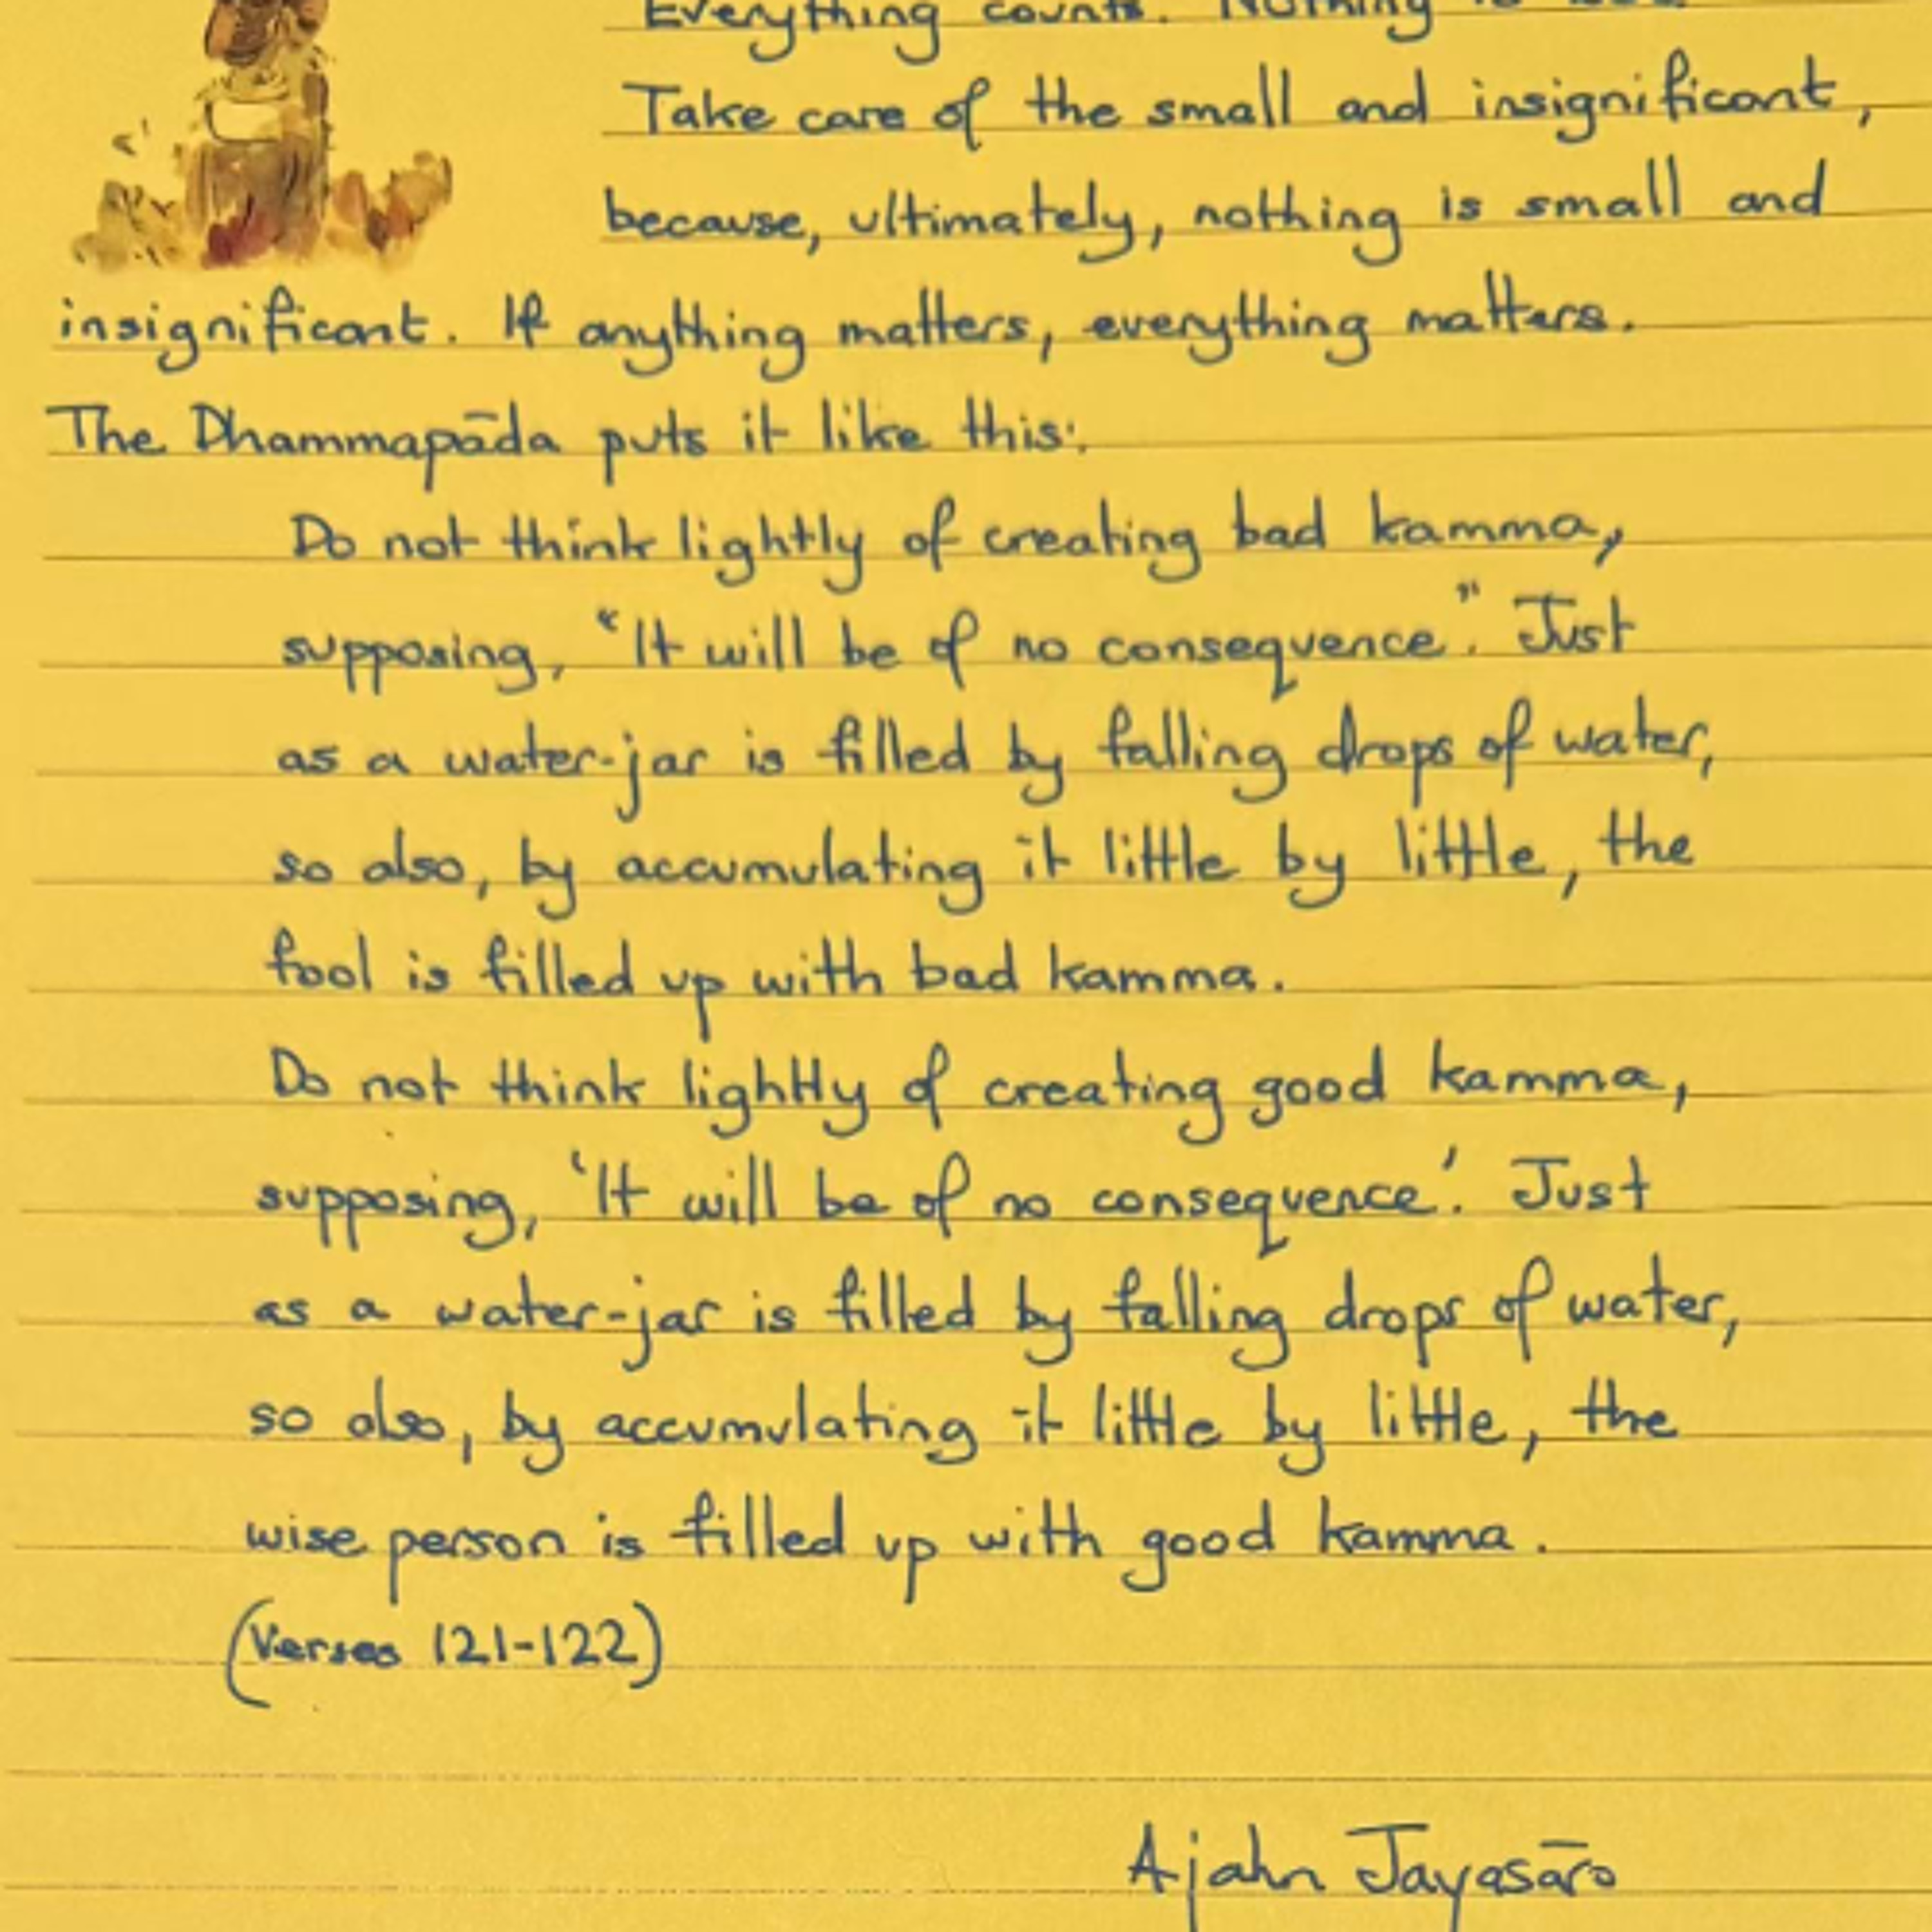 Everything counts. Nothing is
Take care of the small and insignificant,
because, ultimately, nothing is small and
insignificant. If anything matters, everything matters.
The Dhammapāda puts it like this:
Do not think lightly of creating bad kamma,
supposing, "It will be of no consequence". Just
as a water-jar is filled by falling drops of water,
so also, by accumulating it little by little, the
fool is filled up with bad kamma.
Do not think lightly of creating good kamma,
supposing, 'It will be of no consequence'. Just
as a water-jar is filled by falling drops of water,
so also, by accumulating it little by little, the
wise person is filled up with good kamma.
(Verses 121-122)
Ajahn Jayasāro